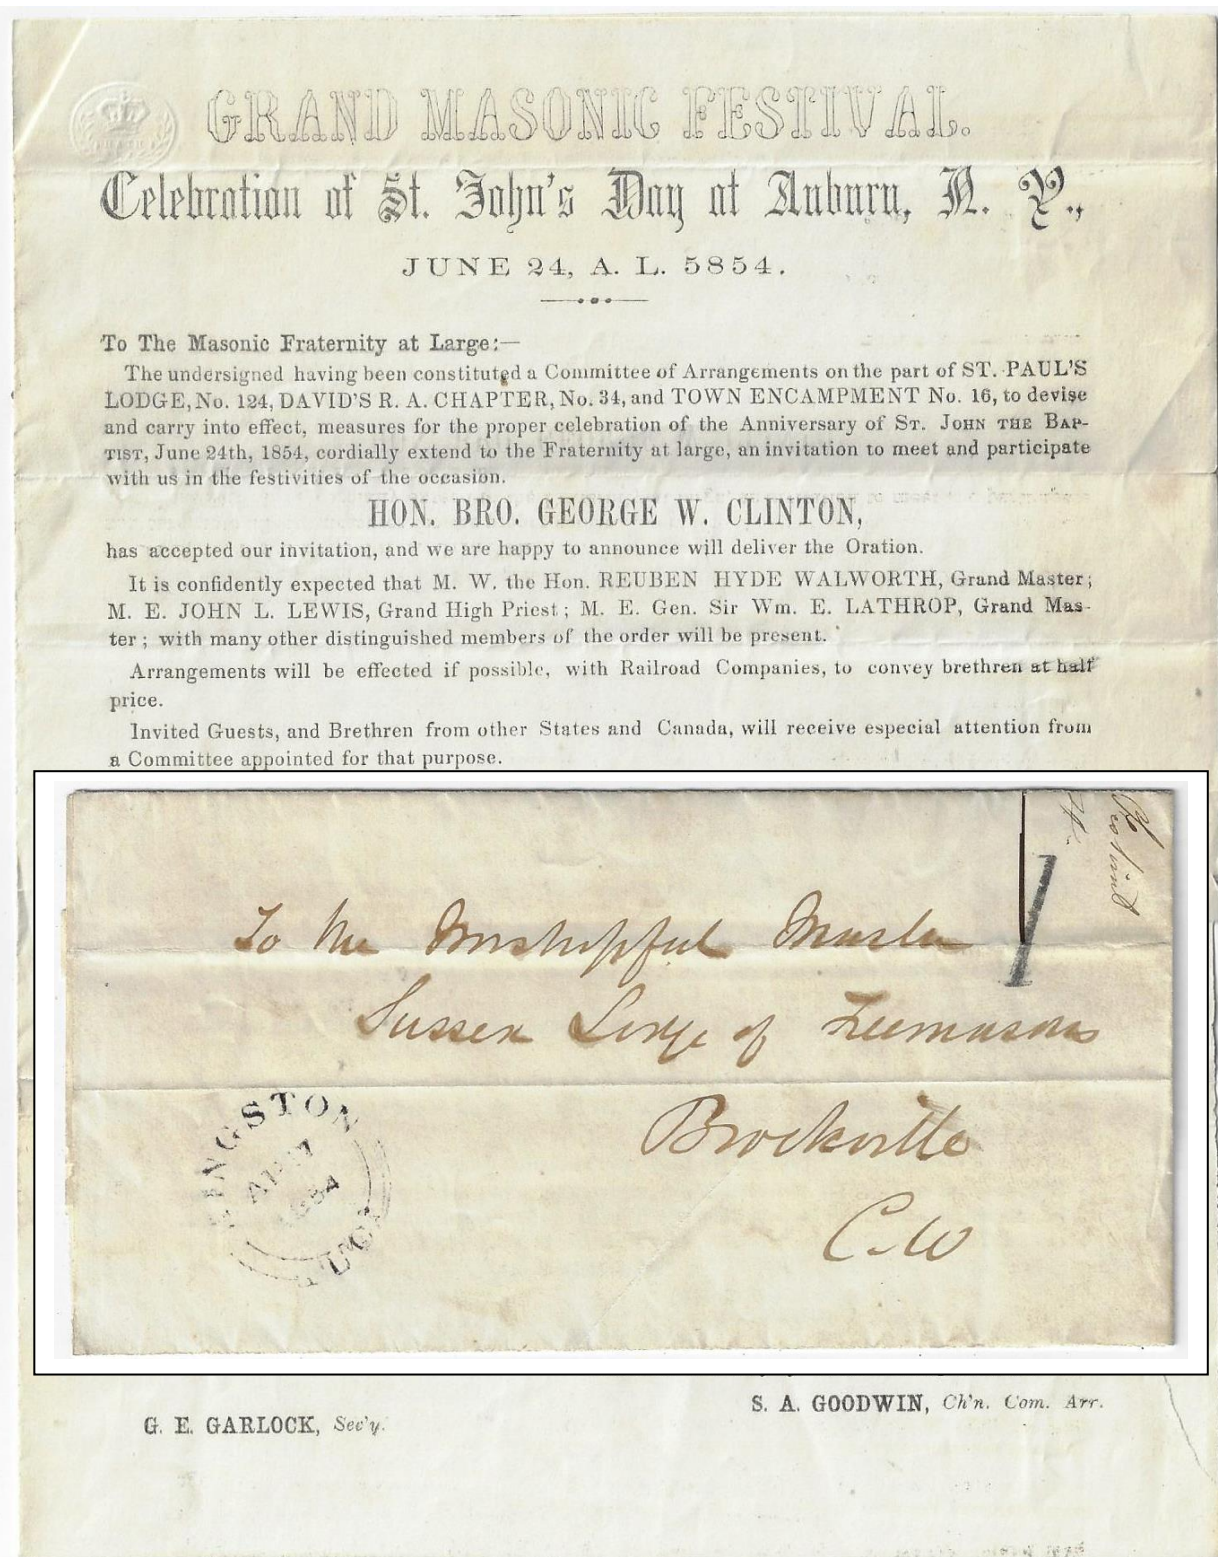 GRAND MASONIC FESTIVAL.
Celebration of St. John's Day at Auburn, N. Y.,
JUNE 24, A. L. 5854.
To The Masonic Fraternity at Large:—
The undersigned having been constituted a Committee of Arrangements on the part of ST. PAUL'S
LODGE, No. 124, DAVID'S R. A. CHAPTER, No. 34, and TOWN ENCAMPMENT No. 16, to devise
and carry into effect, measures for the proper celebration of the Anniversary of ST. JOHN THE BAP-
TIST, June 24th, 1854, cordially extend to the Fraternity at large, an invitation to meet and participate
with us in the festivities of the occasion.
HON. BRO. GEORGE W. CLINTON,
has accepted our invitation, and we are happy to announce will deliver the Oration.
It is confidently expected that M. W. the Hon. REUBEN HYDE WALWORTH, Grand Master;
M. E. JOHN L. LEWIS, Grand High Priest; M. E. Gen. Sir Wm. E. LATHROP, Grand Mas-
ter; with many other distinguished members of the order will be present.
Arrangements will be effected if possible, with Railroad Companies, to convey brethren at half
price.
Invited Guests, and Brethren from other States and Canada, will receive especial attention from
a Committee appointed for that purpose.
To the Worshipful Master
Sussex Lodge of Freemasons
Brockville
C.W
KINGSTON
1854
U.C.
S. A. GOODWIN, Ch'n. Com. Arr.
G. E. GARLOCK, Sec'y.